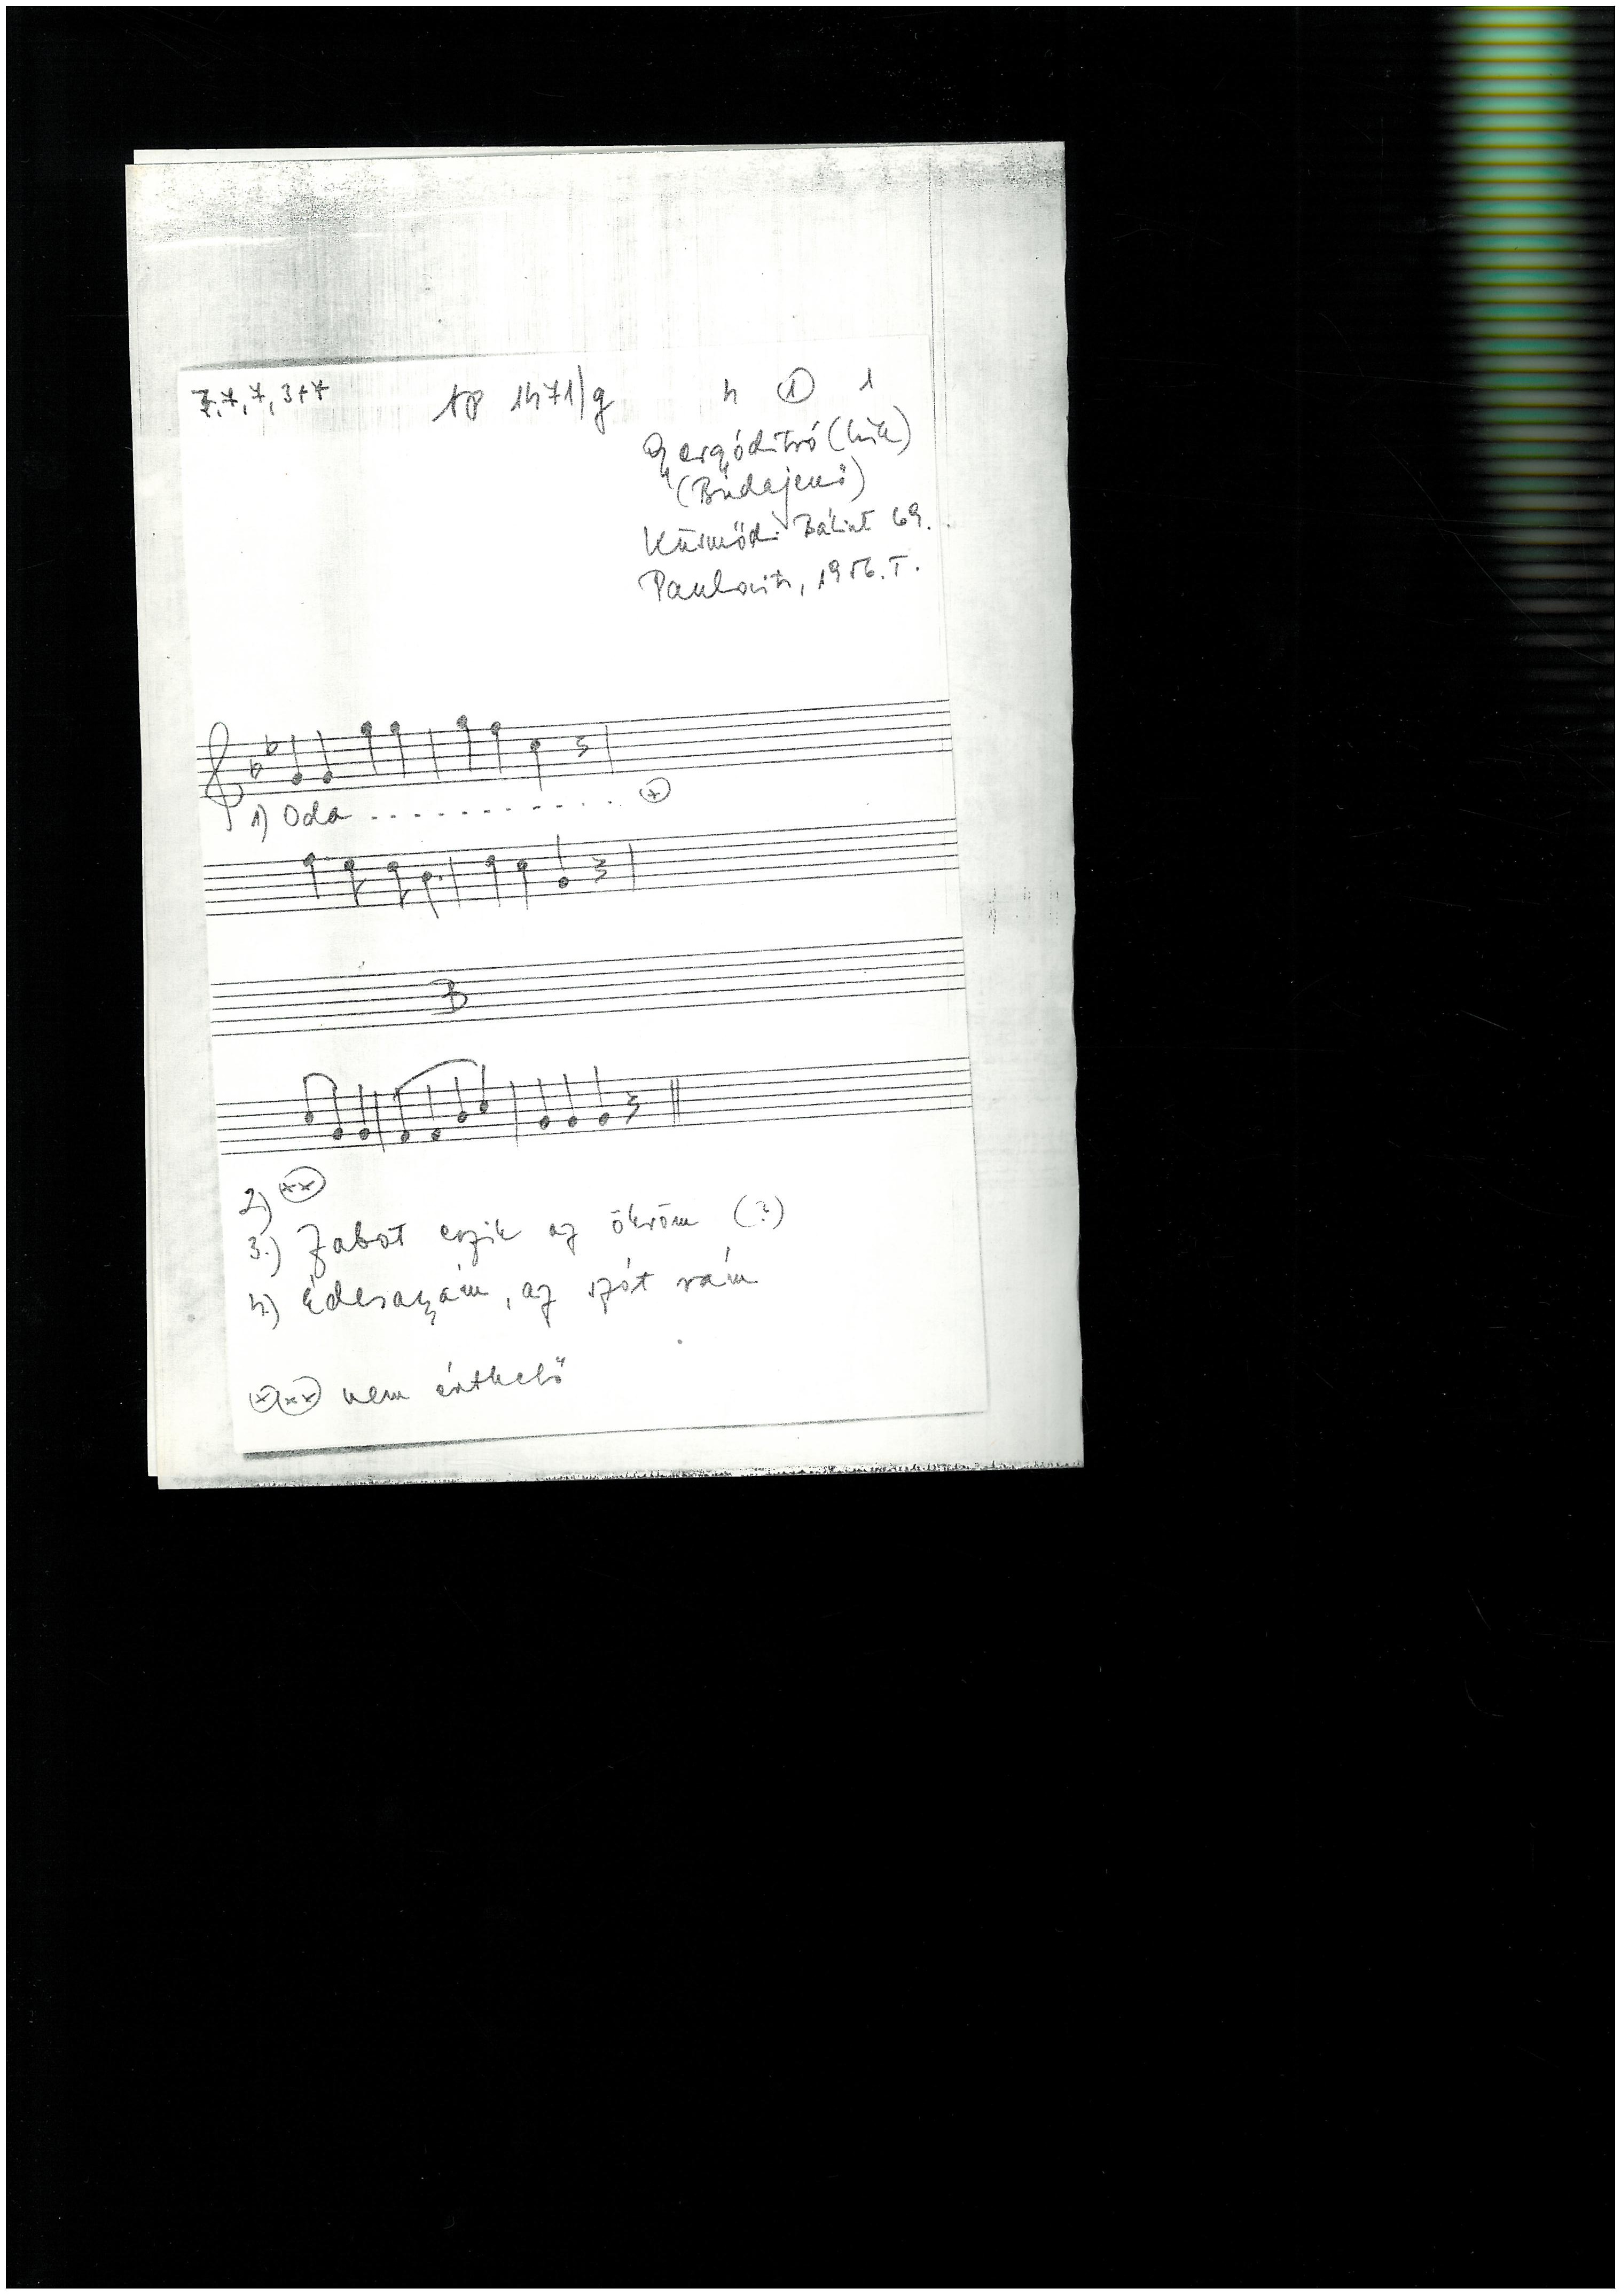 7, 7, 7, 3+7 AP 1471/g 4 ① 1
Gyergyóditró (Csík)
(Budajenő)
Bálint 69.
1956. I.
1) Oda - - - - - - - - - - (x)
B
2) (xx)
3.) Zabot eszik az ökröm (?)
4.) Édesanyám, az szót rám
(x)(xx) nem érthető